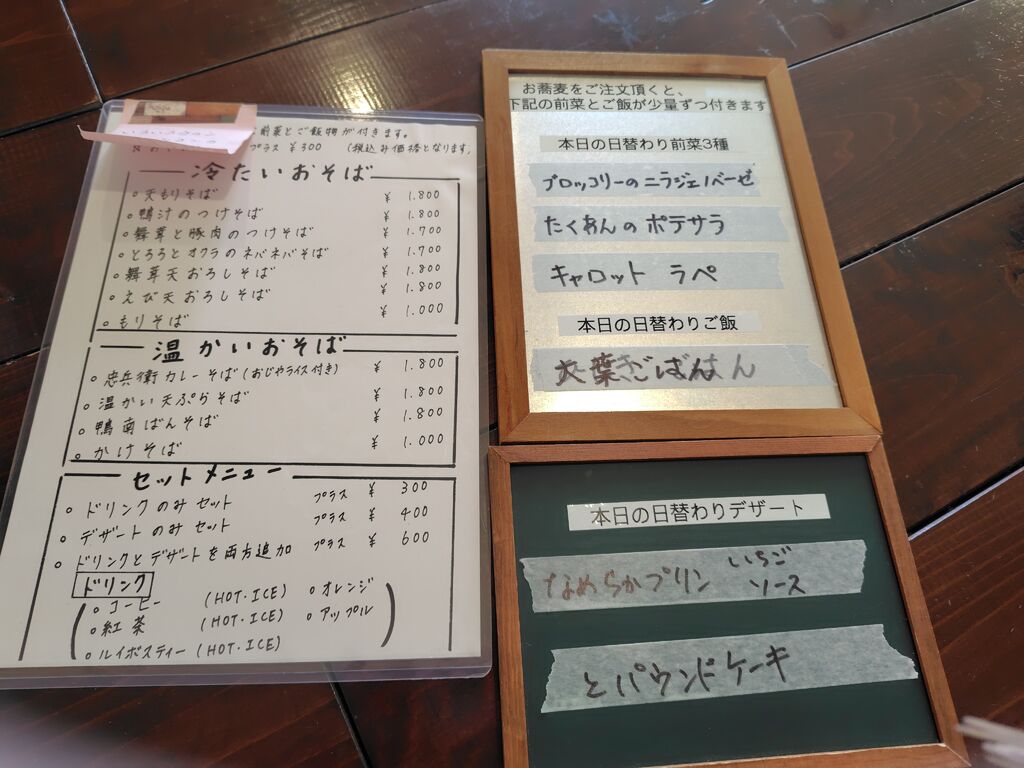 前菜とご飯物が付きます。
プラス ¥300 (税込み価格となります。
冷たいおそば
○天もりそば ¥ 1.800
○鴨汁のつけそば ¥ 1.800
○舞茸と豚肉のつけそば ¥ 1.700
○とろろとオクラのネバネバそば ¥ 1.700
○舞茸天おろしそば ¥ 1.800
○えび天おろしそば ¥ 1.800
○もりそば ¥ 1.000
温かいおそば
○忠兵衛カレーそば(おじやライス付き) ¥ 1.800
○温かい天ぷらそば ¥ 1.800
○鴨南ばんそば ¥ 1.800
○かけそば ¥ 1.000
セットメニュー
○ドリンクのみセット プラス ¥ 300
○デザートのみセット プラス ¥ 400
○ドリンクとデザートを両方追加 プラス ¥ 600
ドリンク
○コーヒー (HOT・ICE) ○オレンジ
○紅茶 (HOT・ICE) ○アップル
○ルイボスティー(HOT・ICE)
お蕎麦をご注文頂くと、
下記の前菜とご飯が少量ずつ付きます
本日の日替わり前菜3種
ブロッコリーのニラジェノベーゼ
たくあんのポテサラ
キャロット ラペ
本日の日替わりご飯
本日の日替わりデザート
なめらかプリン いちご
ソース
とパウンドケーキ